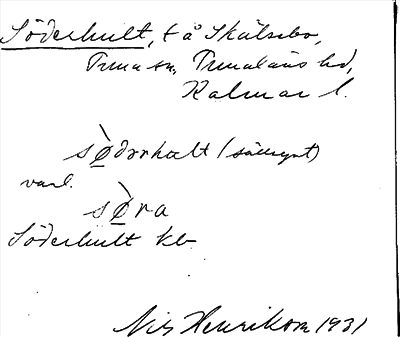 Söderhult, t å Skälsebo,
Tuna sn, Tunaläns hd,
Kalmar l.
sø̀dərhəlt (sällsynt)
vanl.
sø̀ra
Söderhult kb
Nils Henrikson 1931